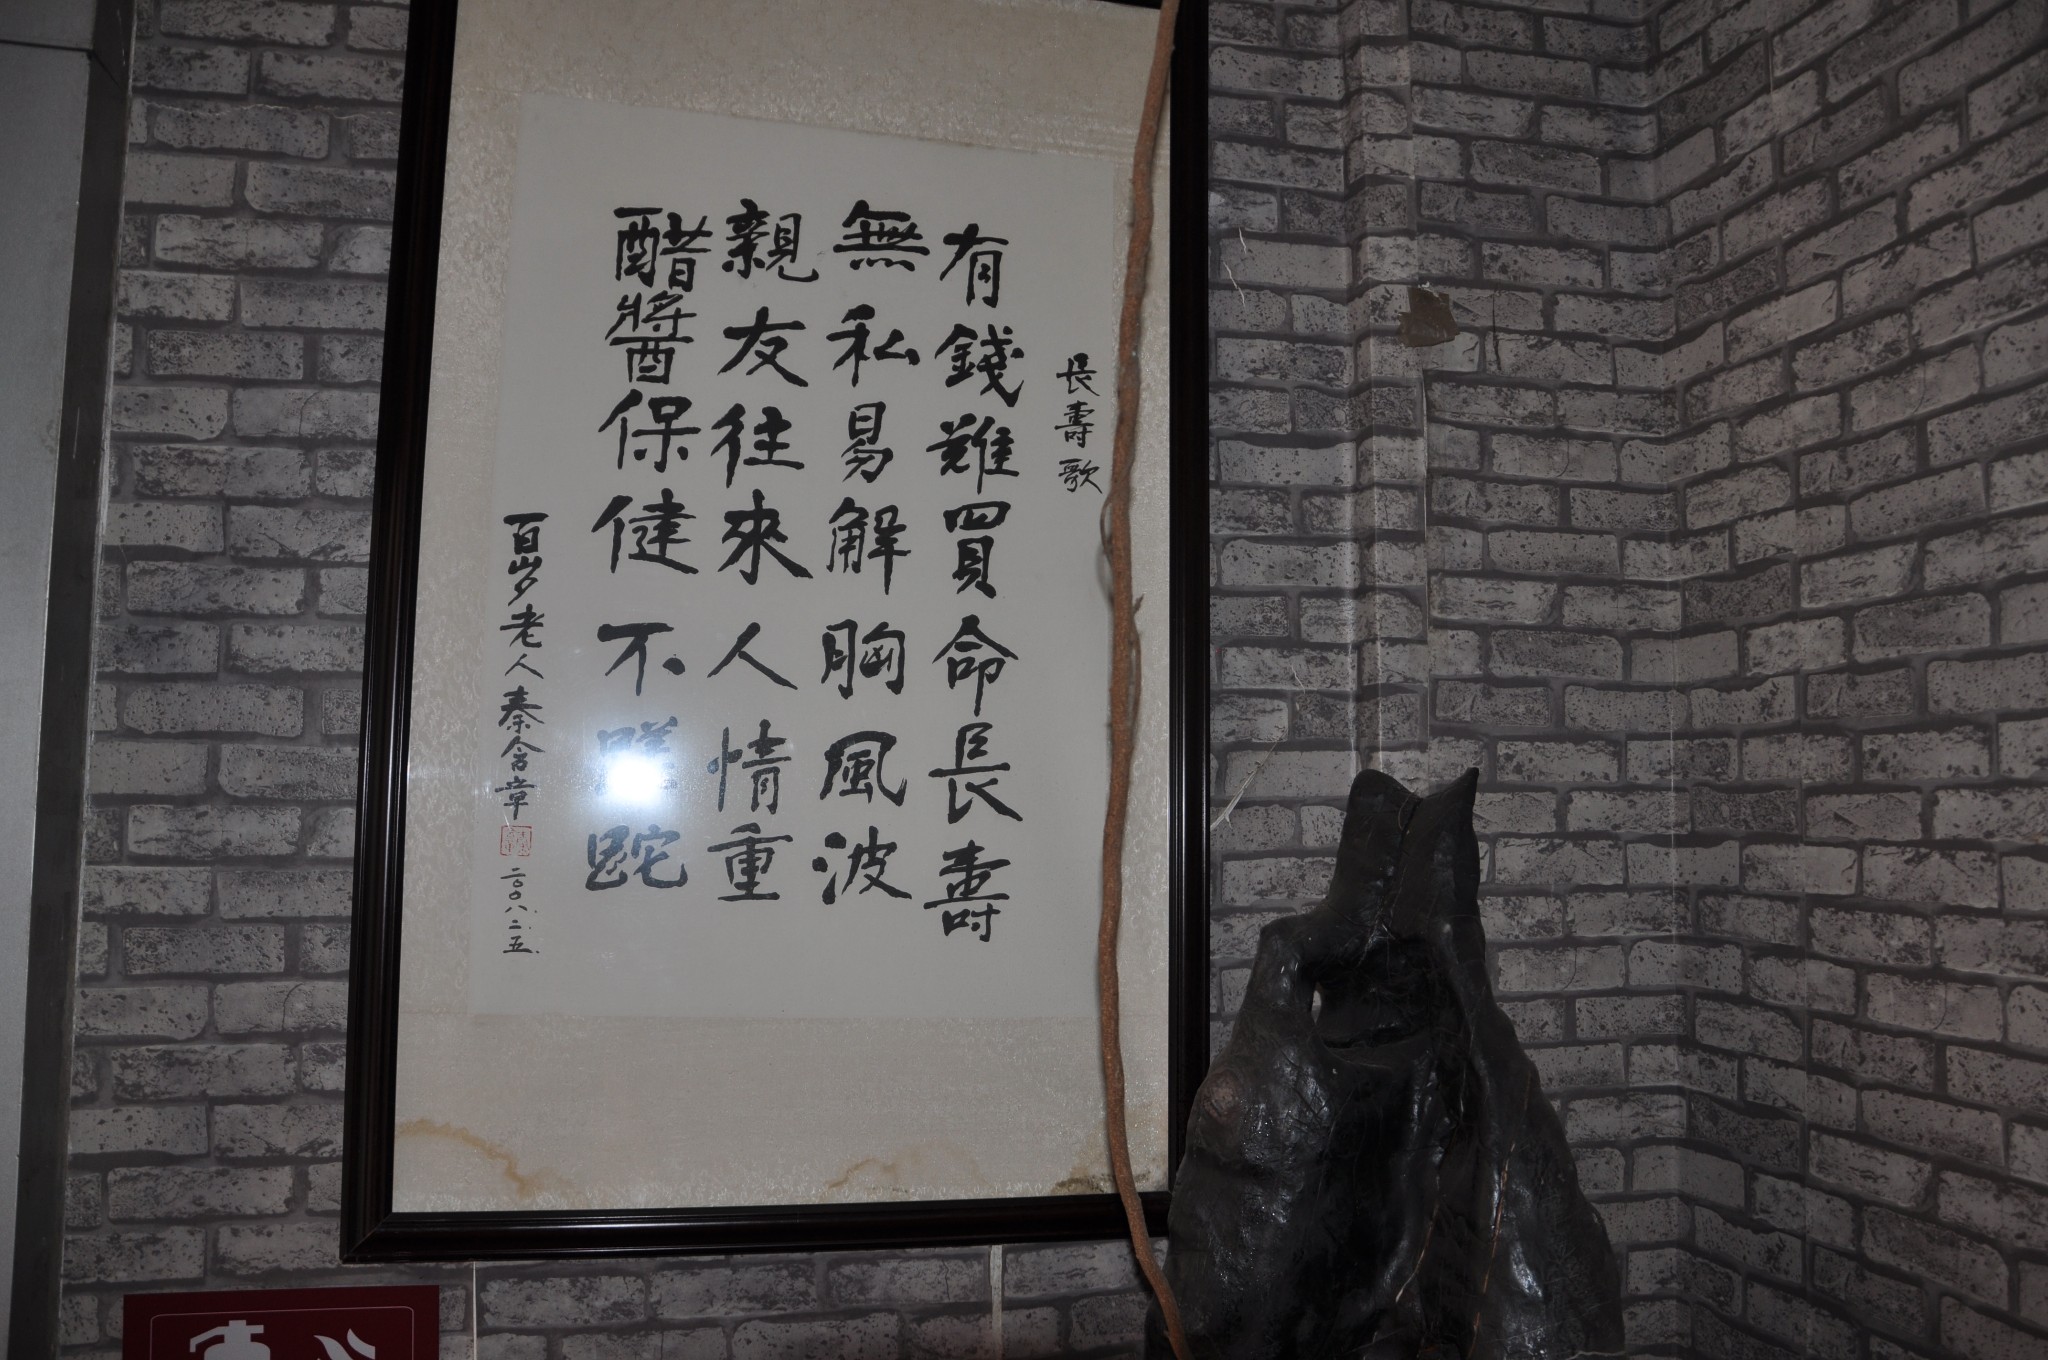 長壽歌
有錢難買命長壽
無私易解胸風波
親友往來人情重
醋醬保健不蹉跎
百岁老人秦含章
二〇〇八.二.五.